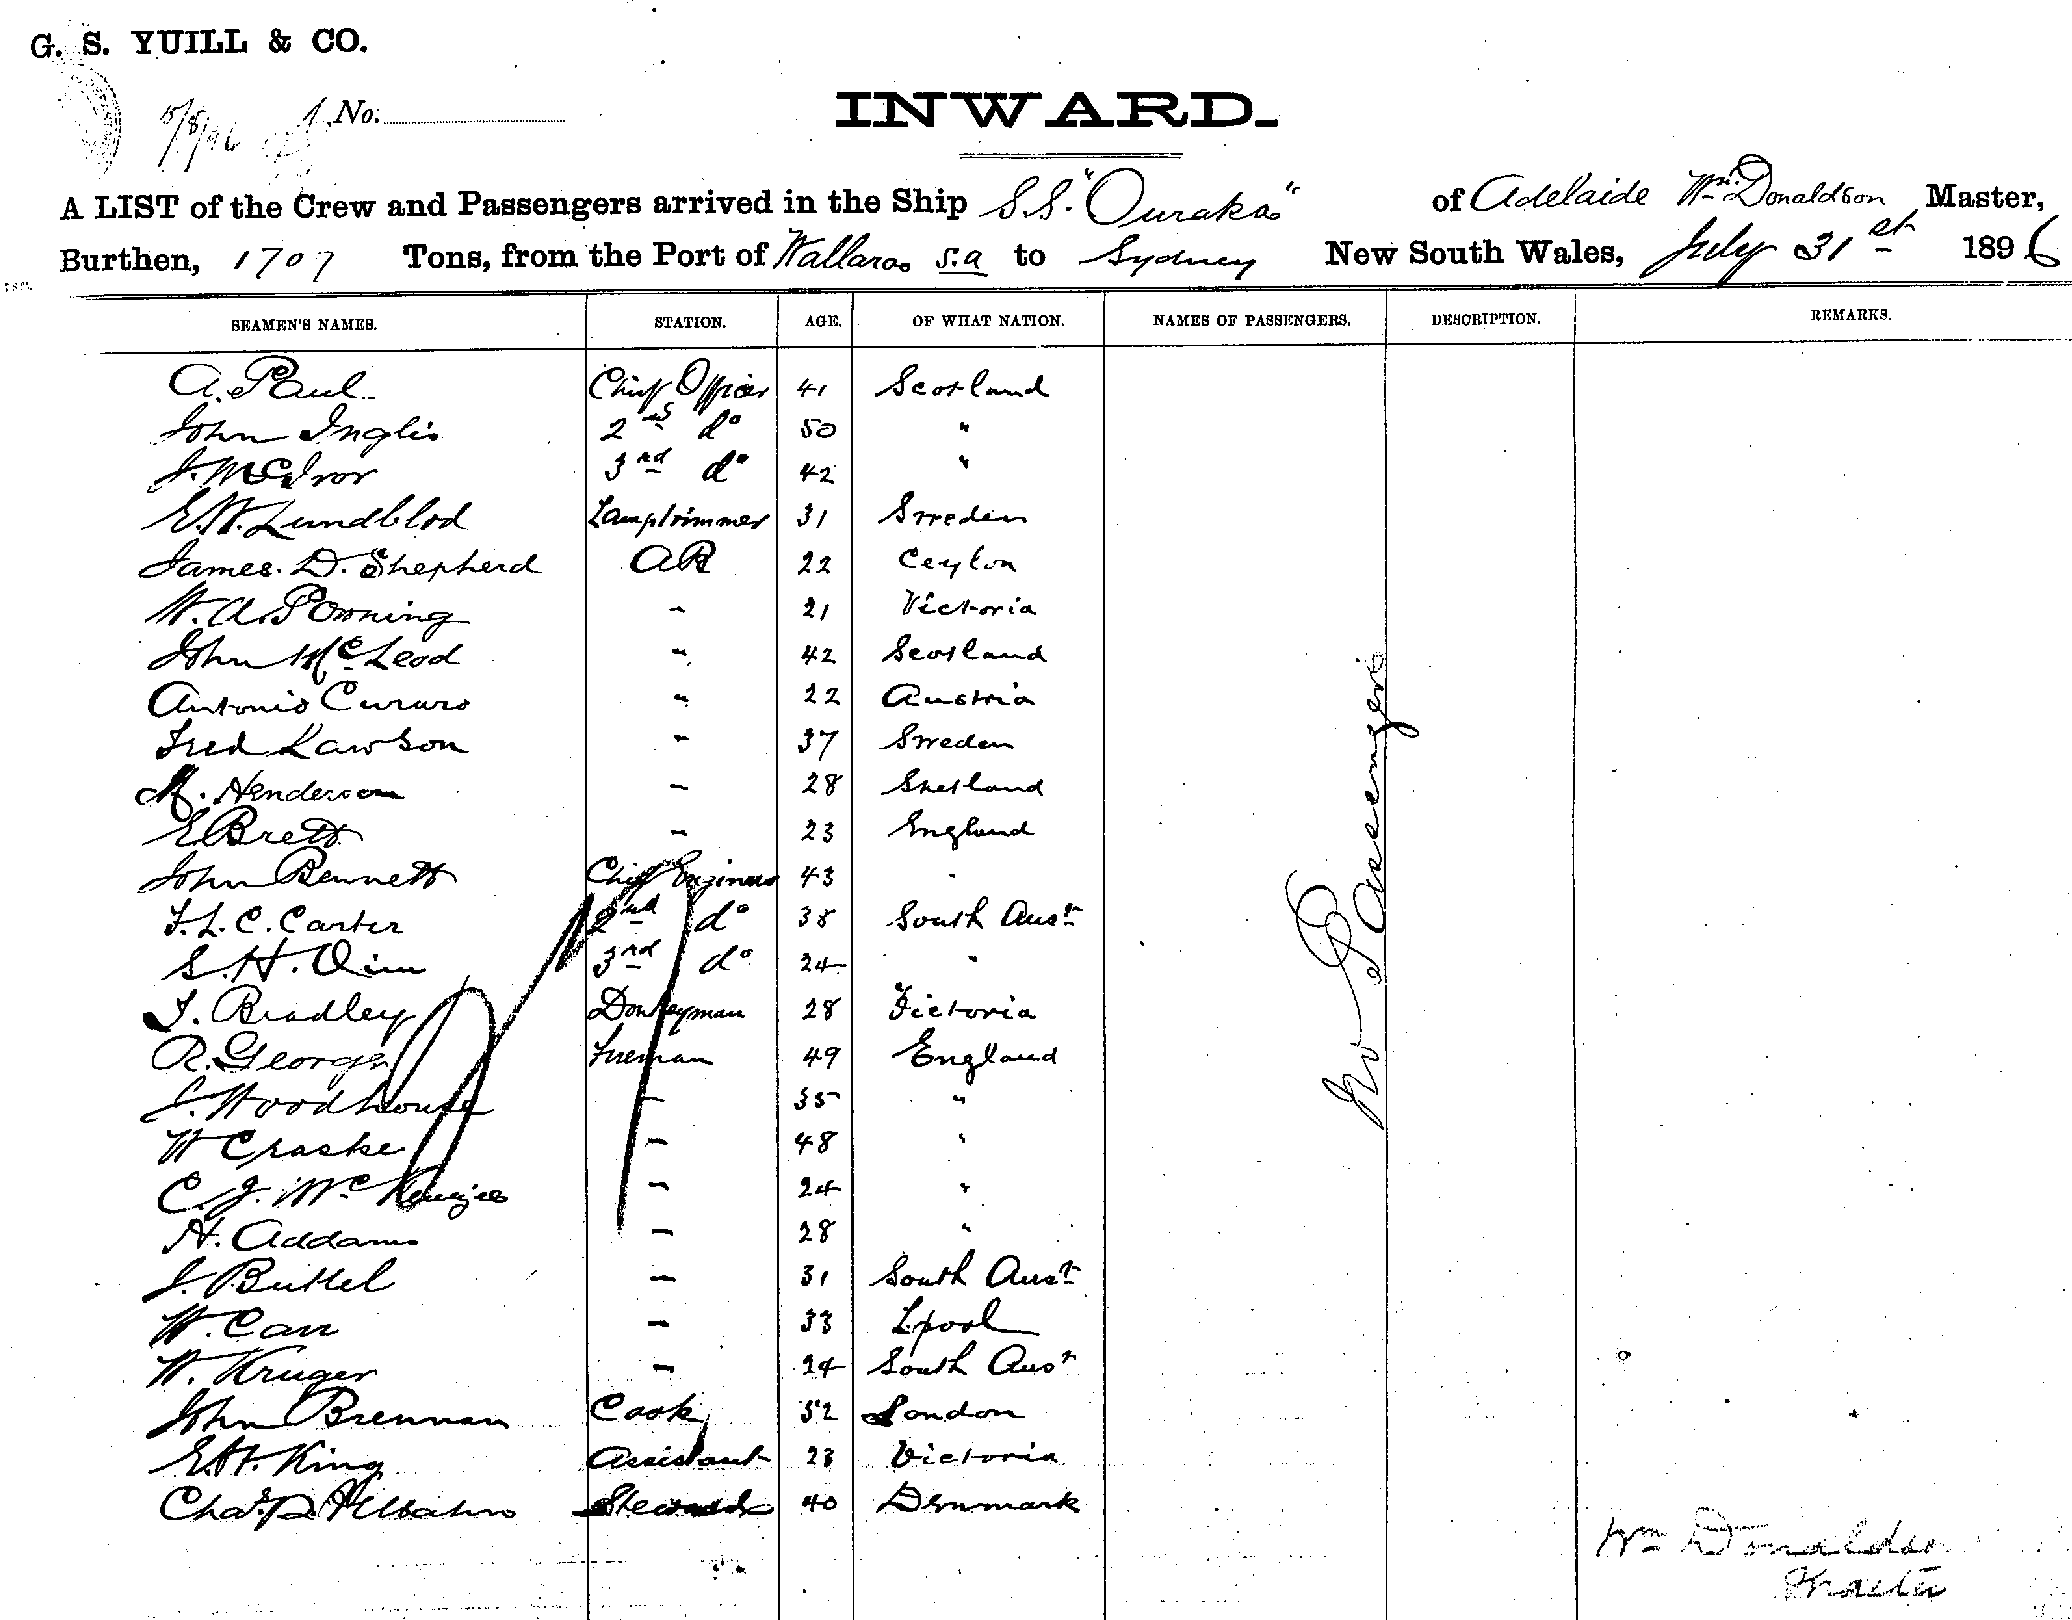 G. S. YUILL & CO.
5/8/96 No:
INWARD.
A LIST of the Crew and Passengers arrived in the Ship S.S. "Ouraka" of Adelaide Wm. Donaldson Master,
Burthen, 1707 Tons, from the Port of Wallaroo S.a to Sydney New South Wales, July 31st 1896
SEAMEN'S NAMES. STATION. AGE. OF WHAT NATION. NAMES OF PASSENGERS. DESCRIPTION. REMARKS.
A. Paul Chief Officer 41 Scotland
John Inglis 2nd do 50 "
J. McIvor 3rd do 42 "
E.W. Lundblod Lamptrimmer 31 Sweden
James. D. Shepherd AB 22 Ceylon
W. A. Powning " 21 Victoria
John McLeod " 42 Scotland
Antonio Cururo " 22 Austria
Fred Lawson " 37 Sweden
M. Henderson " 28 Shetland
E Brett " 23 England
John Bennett Chief Engineer 43 "
F. L. C. Carter 2nd do 38 South Aust
S. H. 3rd do 24 "
J. Bradley Donkeyman 28 Victoria
R. George Fireman 49 England
J. Woodhouse " 35 "
W Craske " 48 "
C. J. McKenzie " 24 "
H. Addams " 28 "
J. Buttel " 31 South Aust
W. Carr " 33 Lpool
W. Kruger " 24 South Aust
John Brennan Cook 52 London
E.H. King Assistant 23 Victoria
Chas. Steward 40 Denmark
No Passengers
Wm Donaldson
Master